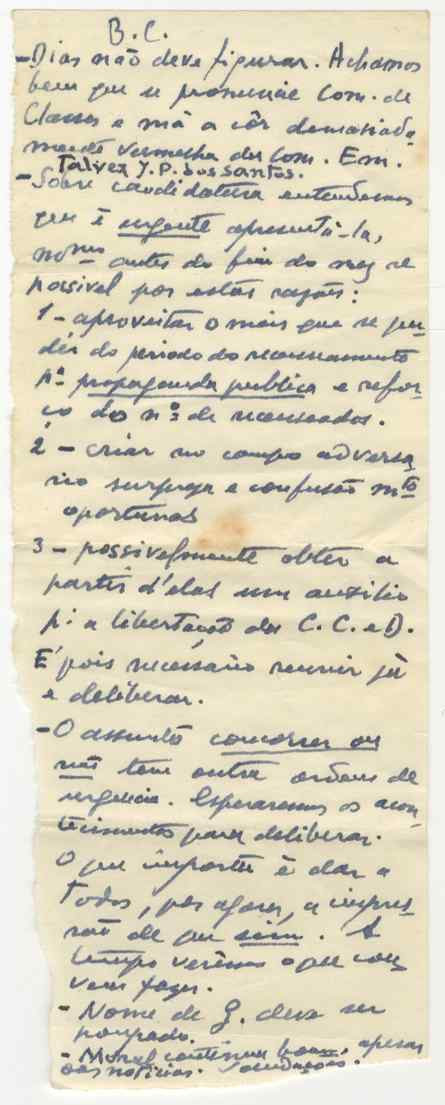 B.C.
- Dias não deve figurar. Achamos
bem que se pronuncie Com. de
Classes e não a côr demasiada-
mente vermelha dos Com. Em.
Talvez J. P. dos Santos.
- Sobre candidatura entendemos
que é urgente apresentá-la,
mesmo antes do fim do mez se
possivel por estas razões:
1 - aproveitar o mais que se pu-
der do periodo do recenseamento
pª propaganda publica e refor-
ço do nº de recenseados.
2 - criar no campo adversa-
rio surpreza e confusão mto
oportunas
3 - possivelmente obter a
partir d'elas um auxilio
p: a libertação dos C. C. e D.
É pois necessário reunir já
e deliberar.
- O assunto concorrer ou
não tem outra ordem de
urgencia. Esperaremos os acon-
tecimentos para deliberar.
O que importa é dar a
todos, por agora, a impres-
são de que sim. A
tempo verêmos o que con-
vem fazer.
- Nome de G. deve ser
poupado.
- Moral continua boa, apesar
das noticias. Saudações.